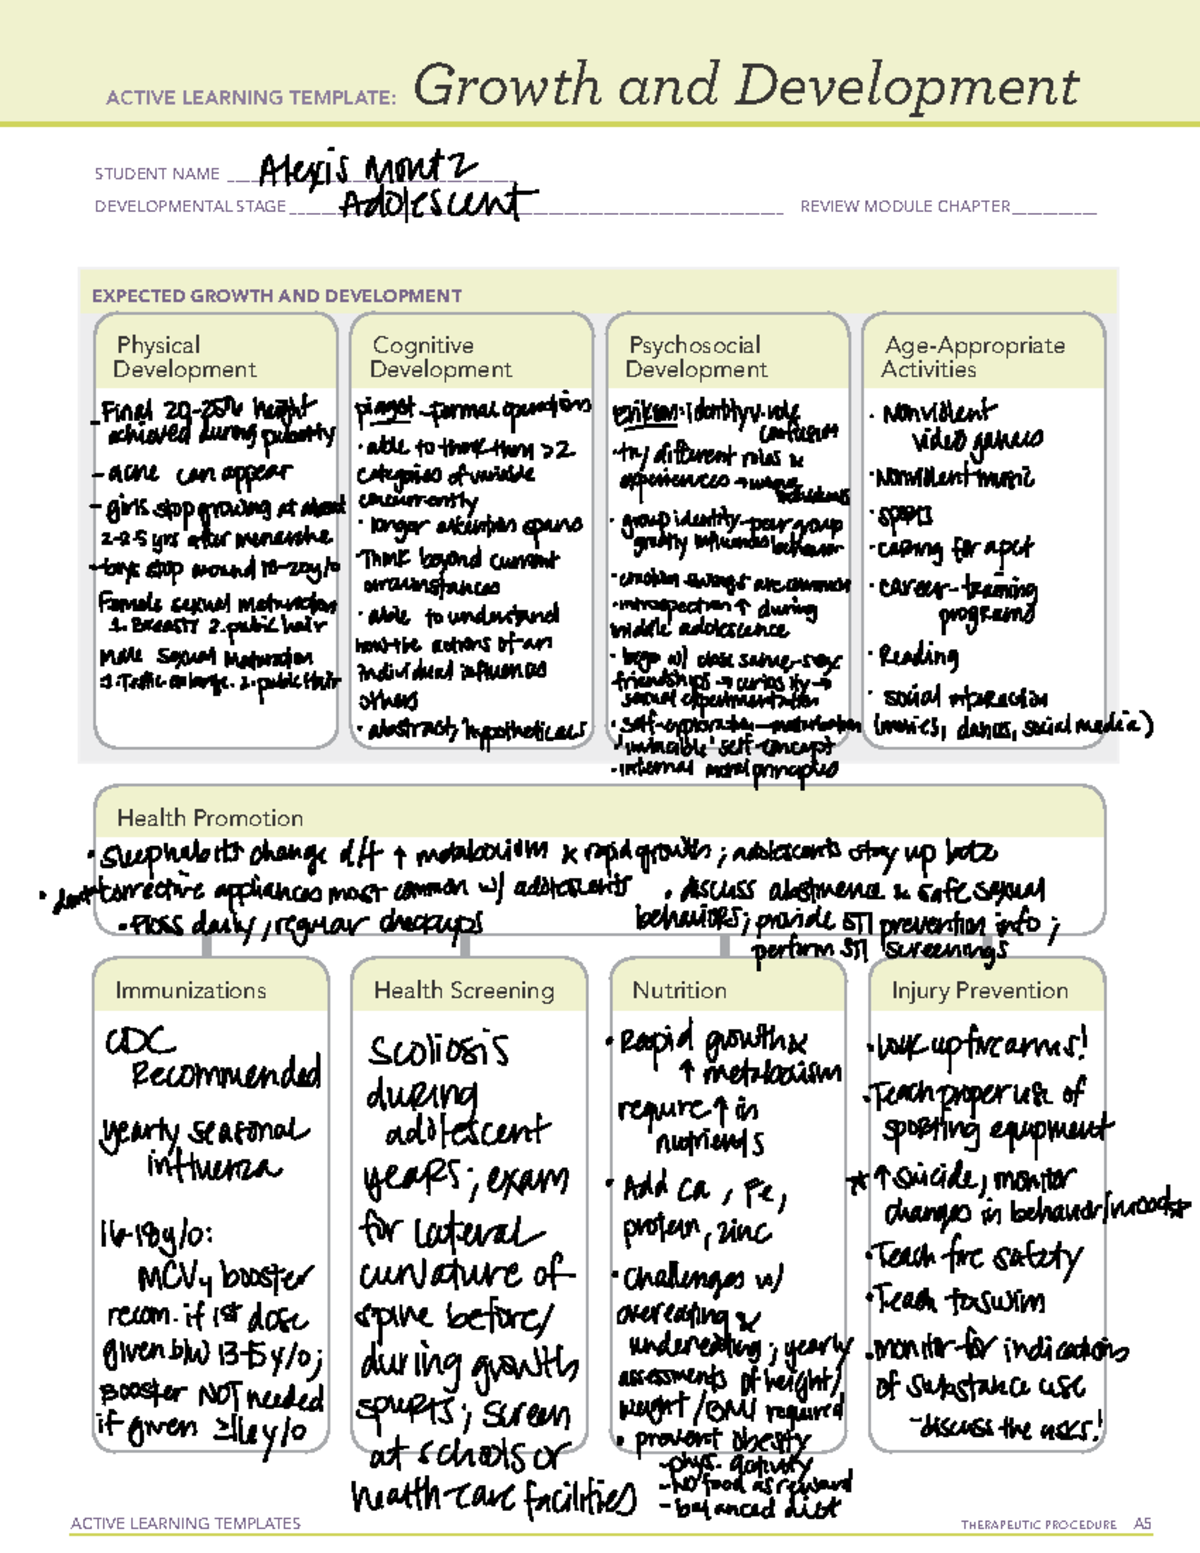 ACTIVE LEARNING TEMPLATE: Growth and Development
STUDENT NAME Alexis Montz
DEVELOPMENTAL STAGE Adolescent REVIEW MODULE CHAPTER
EXPECTED GROWTH AND DEVELOPMENT
Physical
Development
- Final 20-25% height
achieved during puberty
- acne can appear
- girls stop growing at about
2-2.5 yrs after menarche
- boys stop around 18-20y/o
Female sexual maturation
1. Breasts 2. pubic hair
Male Sexual Maturation
1. Testic enlarge. 2. pubic Hair
Cognitive
Development
piaget - formal operations
· able to think thru >2
categories of variable
concurrently
· longer attention spans
· Think beyond current
circumstances
· able to understand
how the actions of an
individual influences
others
· abstract, hypotheticals
Psychosocial
Development
Erikson: identity v. role
confusion
· try different roles &
experiences → unique
individuals
· group identity - peer group
greatly influences behavior
· emotion swings are common
· introspection ↑ during
middle adolescence
· begin w/ close same-sex
friendships → curiosity →
sexual experimentation
· self-exploration - masturbation
· "invincible" self-concept
- internal moral principles
Age-Appropriate
Activities
· Nonviolent
video games
· Nonviolent music
· sports
· caring for a pet
· career-training
programs
· Reading
· social interaction
(movies, dances, social media)
Health Promotion
· Sleep habits change d/t ↑ metabolism & rapid growth; adolescents stay up late
· dent corrective appliances most common w/ adolescents
· Floss daily, regular checkups
· discuss abstinence & safe sexual
behaviors; provide STI prevention info;
perform STI screenings
Immunizations
CDC
Recommended
yearly seasonal
influenza
16-18y/o:
MCV4 booster
recom. if 1st dose
given b/w 13-15 y/o;
Booster NOT needed
if given ≥16 y/o
Health Screening
Scoliosis
during
adolescent
years; exam
for lateral
curvature of
spine before/
during growth
spurts; screen
at schools or
health-care facilities
Nutrition
· Rapid growth &
↑ metabolism
require ↑ in
nutrients
· Add Ca, Fe,
protein, zinc
· Challenges w/
overeating &
undereating; yearly
assessments of height/
weight/BMI required
· prevent obesity
-phys. activity
-No food as reward
-balanced diet
Injury Prevention
· Lock up firearms!
· Teach proper use of
sporting equipment
* ↑ Suicide, monitor
changes in behavior/mood *
· Teach fire safety
· Teach to swim
· monitor for indications
of substance use
-discuss the risks!
ACTIVE LEARNING TEMPLATES THERAPEUTIC PROCEDURE A5